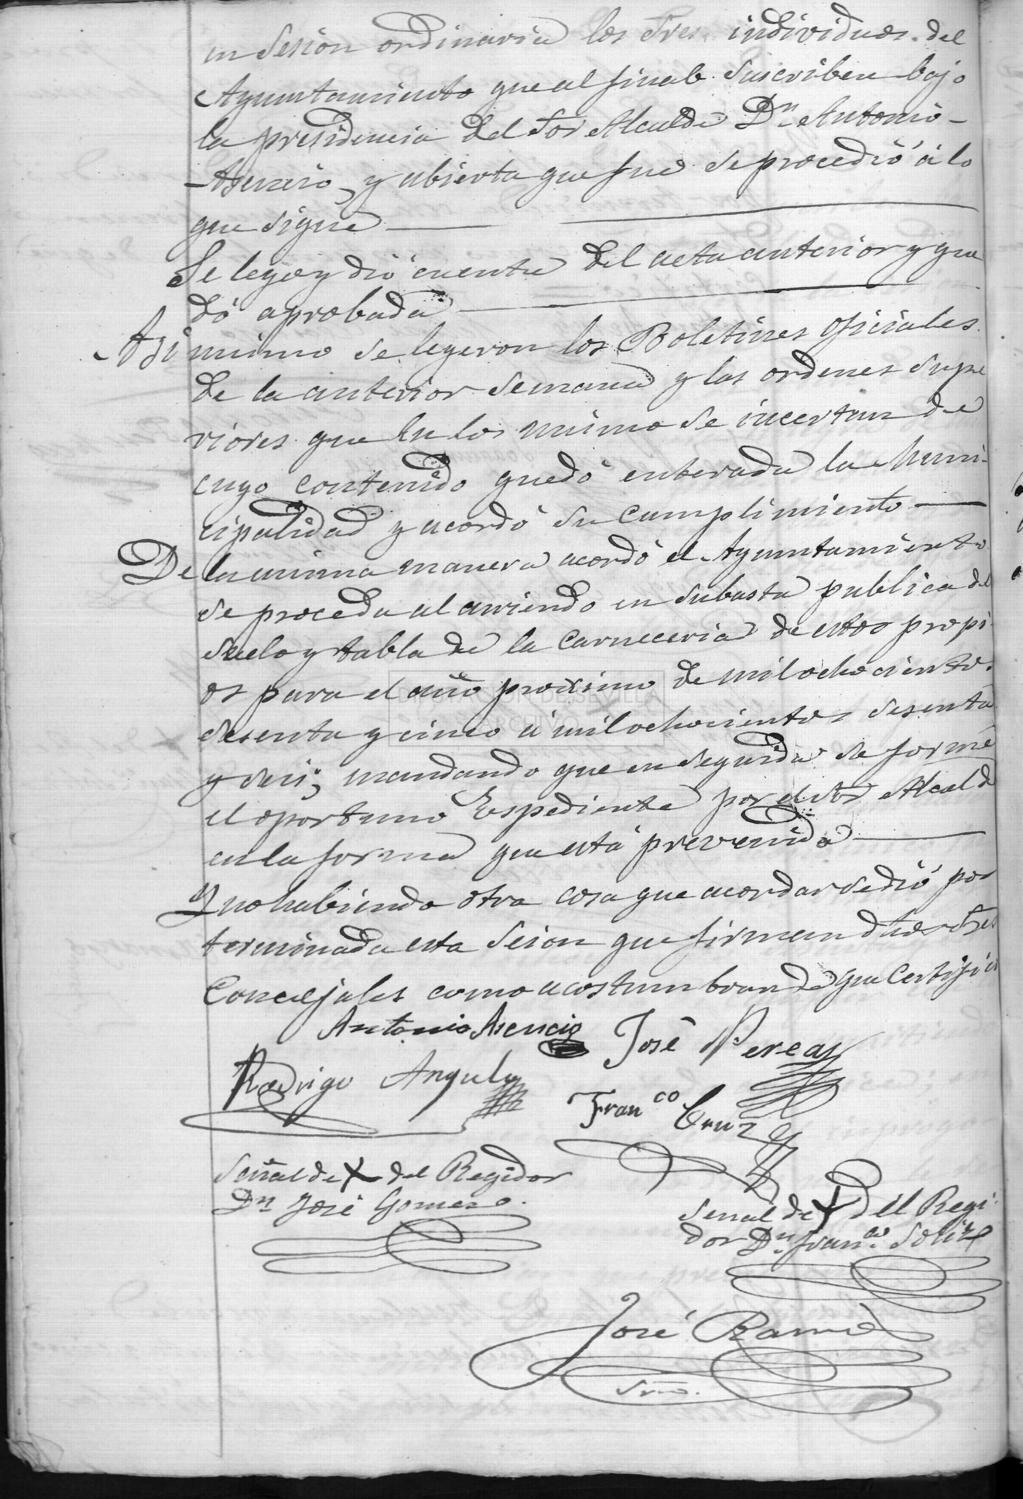 en sesion ordinaria los Sres. individuos del
Ayuntamiento que al final suscriben bajo
la presidencia del Sor Alcalde Dn Antonio
Asencio, y abierta que fue se procedió á lo
que sigue
Se leyo y dió cuenta del acta anterior y que
dó aprobada
Asi mismo se leyeron los Boletines Oficiales
de la anterior semana y las ordenes supe
riores que en los mismo se incertan de
cuyo contenido quedó enterada la Muni-
cipalidad y acordó su cumplimiento
De la misma manera acordó el Ayuntamiento
se proceda al arriendo en subasta publica del
suelo y tabla de la Carneceria de estos propi
os para el año proximo de mil ochociento.
sesenta y cinco á mil ochocientos sesenta
y seis; mandando que en seguida se forme
el oportuno Espediente por el Sr Alcalde
en la forma que está prevenida
Y no habiendo otra cosa que acordar se dió por
terminada esta sesion que firman dhos Sres
Concejales como acostumbran de que Certifico
Antonio Asencio José Pereas
Rodrigo Angulo
Franco Cruz
Señal de X del Regidor
Dn José Gomez.
Señal de X del Regi-
dor Dn Franco Soliz
José Ramo
Srio.
DIPUTACIÓN DE SEVILLA
ARCHIVO